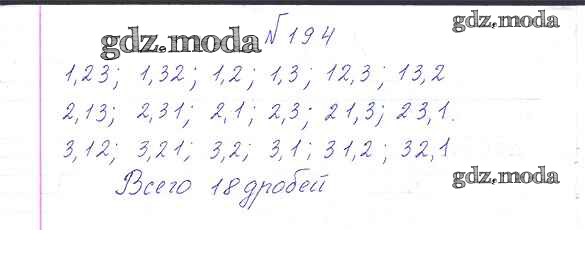 №194
gdz.moda
gdz.moda
1,23; 1,32; 1,2; 1,3; 12,3; 13,2
2,13; 2,31; 2,1; 2,3; 21,3; 23,1.
3,12; 3,21; 3,2; 3,1; 31,2; 32,1
Всего 18 дробей
gdz.moda